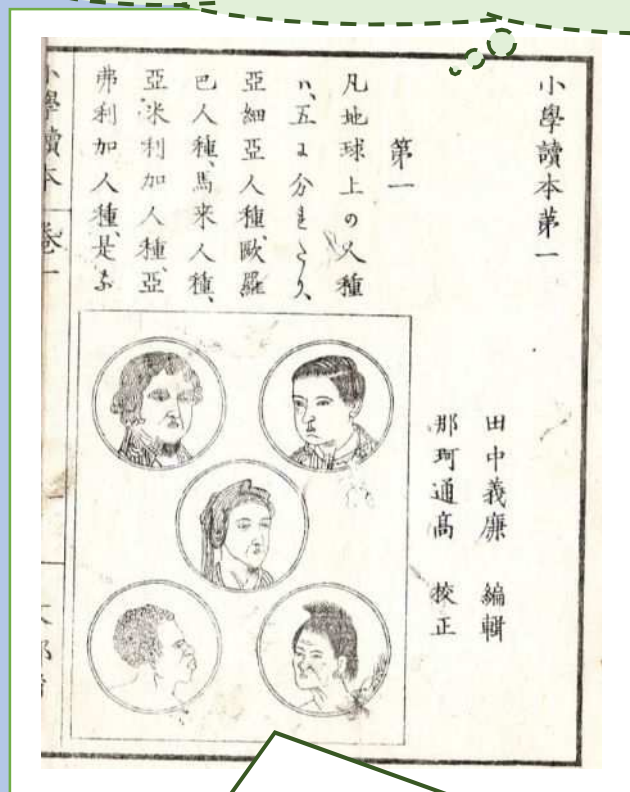 小學讀本苐一
田中義廉 編輯
那珂通髙 挍正
第一
凡地球上の人種
ハ、五に分れたり、
亞細亞人種、歐羅
巴人種、馬來人種、
亞米利加人種、亞
弗利加人種、是な
小學讀本 卷一